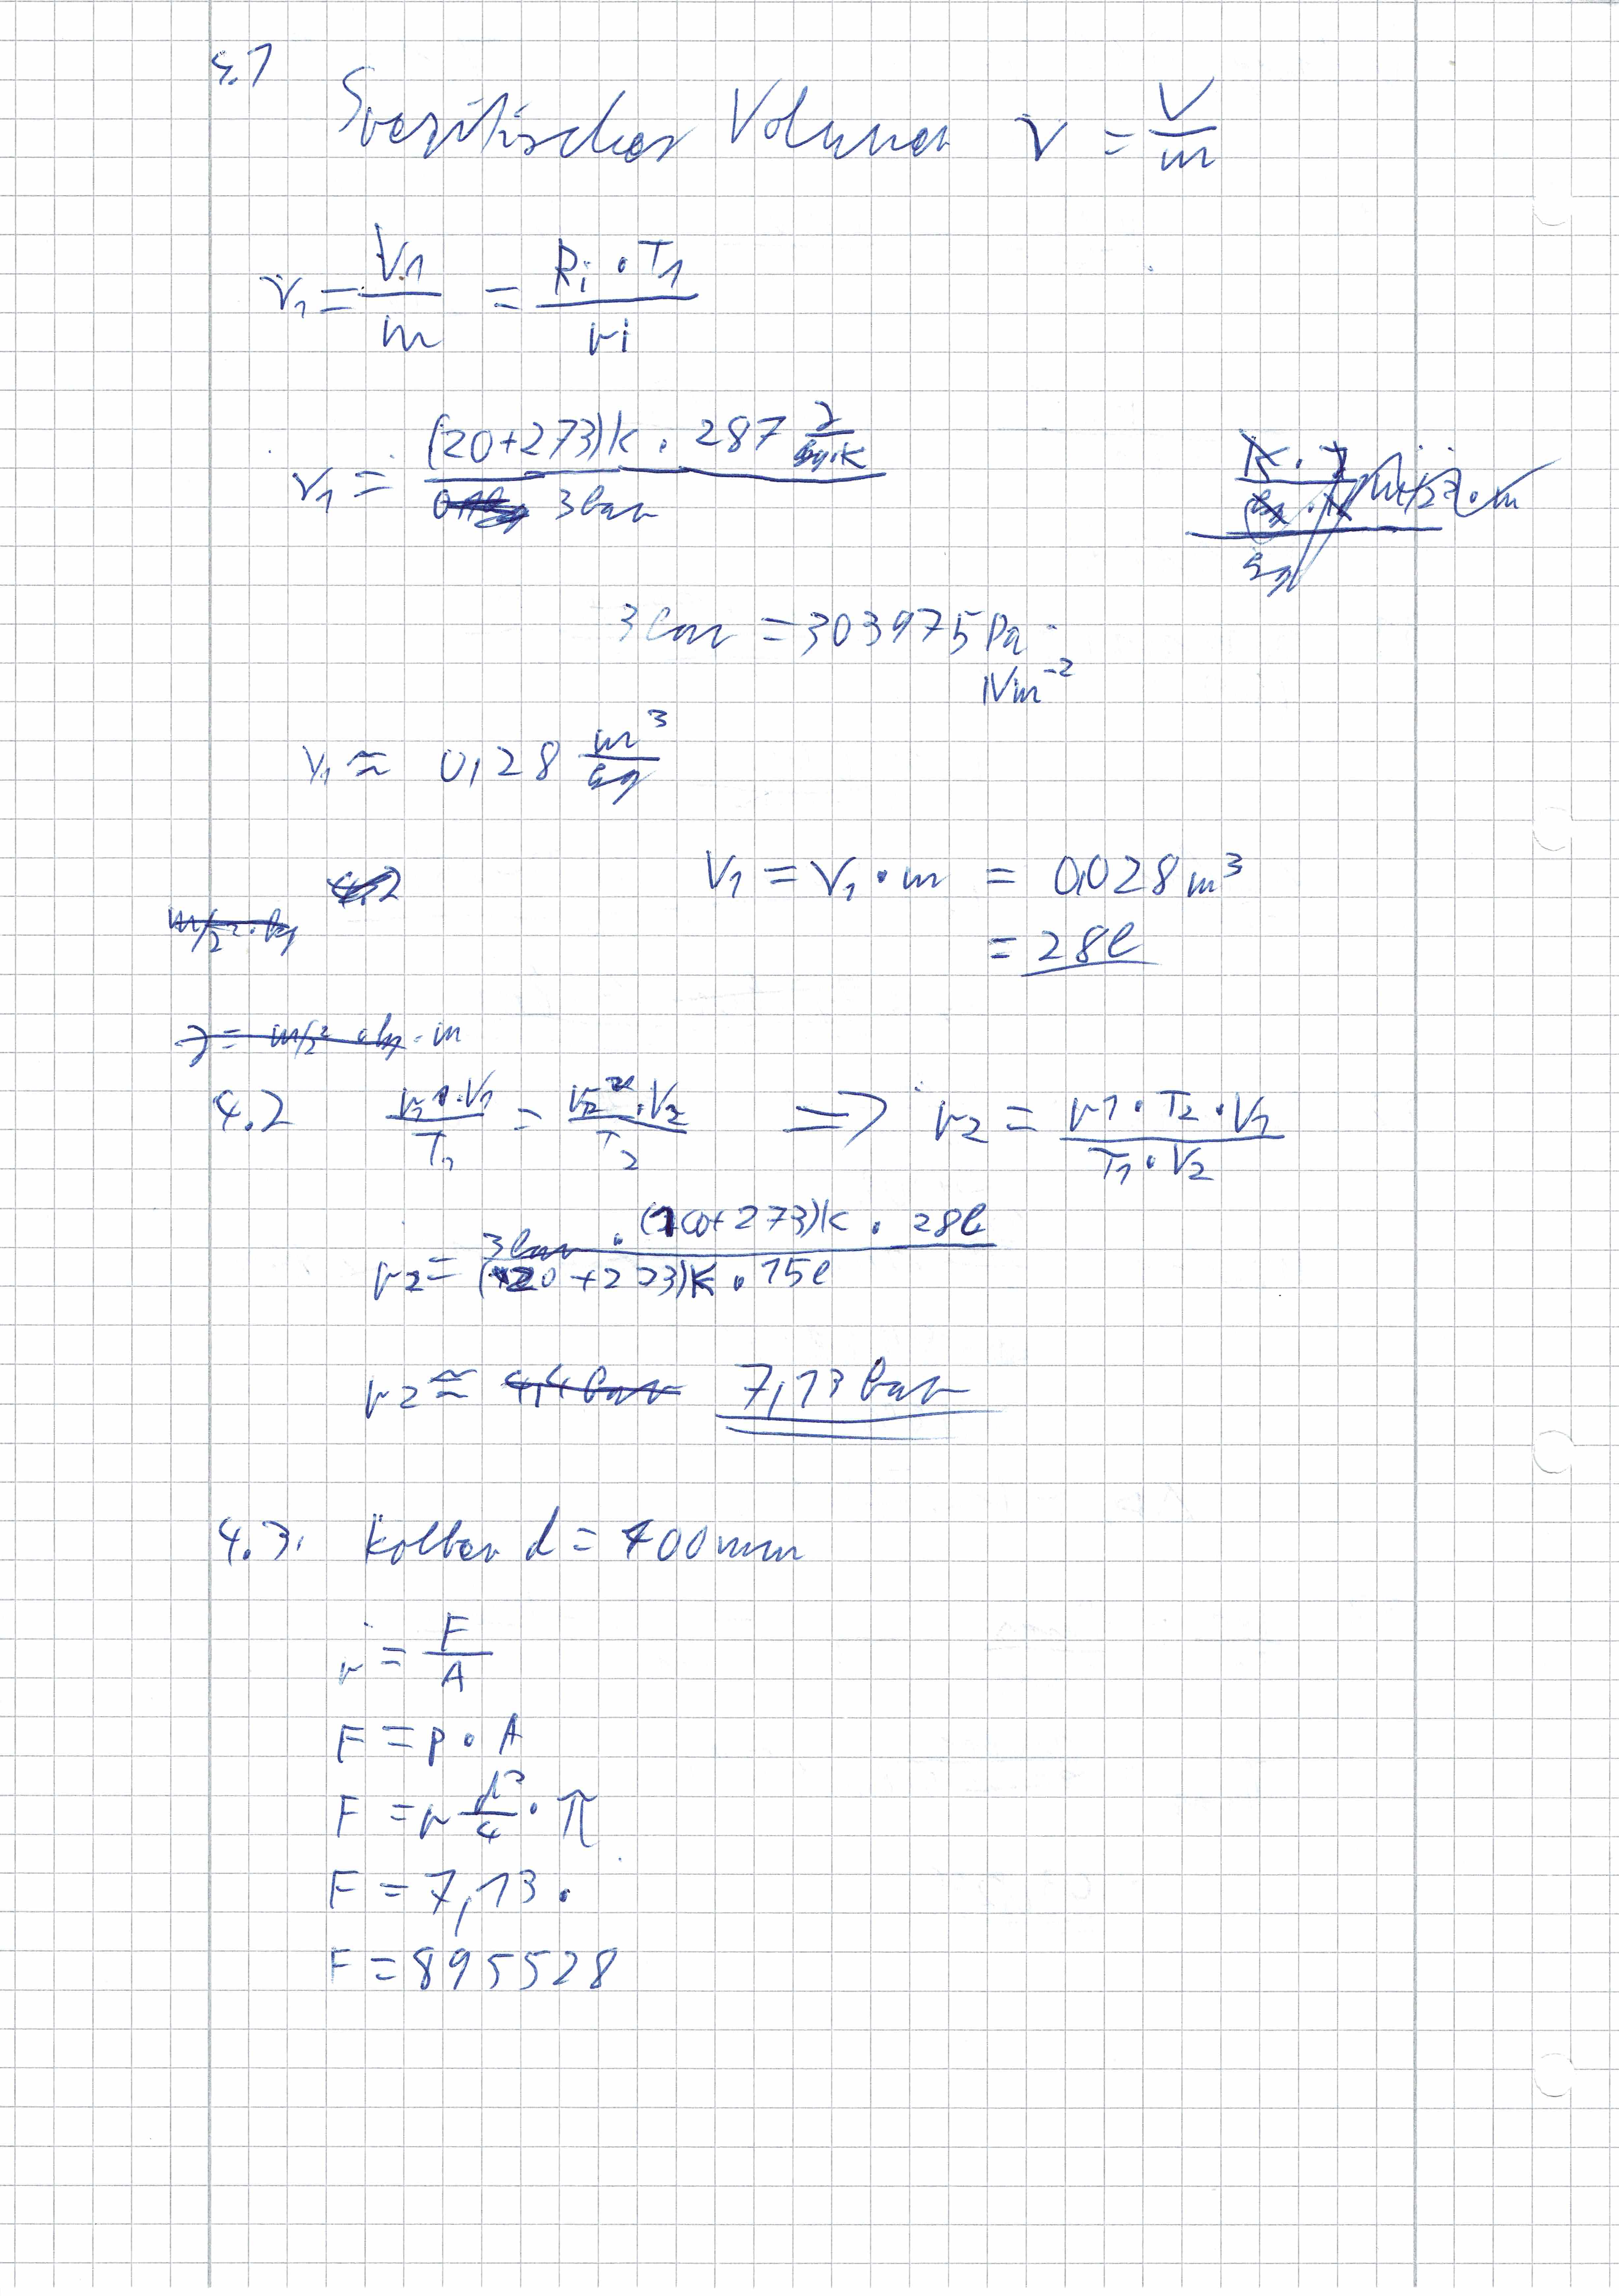 4.1
Spezifisches Volumen v = V/m
v₁ = V₁/m = Ri · T₁/pi
v₁ = (20+273)K · 287 J/kg·K / 3bar
3bar = 303975 Pa
Nm⁻²
v₁ ≈ 0,28 m³/kg
4.2
V₁ = v₁ · m = 0,028 m³
m/s² · kg
= 28l
J = m/s² · kg · m
4.2 p1·V₁/T₁ = p2·V₂/T₂ => p2 = p1 · T₂ · V₁/T₁ · V₂
p2 = 3bar · (100+273)K · 28l/(20+273)K · 15l
p2 ≈ 4,4 bar 7,13 bar
4.3. Kolben d = 400mm
p = F/A
F = p · A
F = p d²/4 · π
F = 7,13 ·
F = 895528